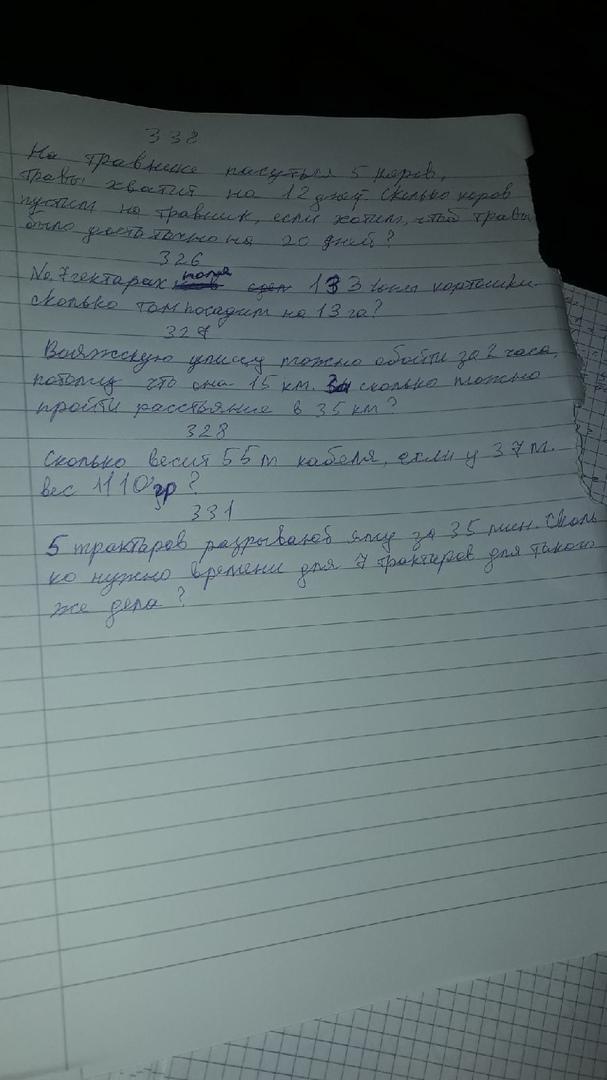 338
На травнике пасуться 5 коров,
травы хватит на 12 дней. Сколько коров
пустили на травник, если хотим, чтоб травы
было достаточно на 20 дней?
326
На 7 гектарах поля 133 тонн картошки
сколько там посадим на 13 га?
327
улицу можно обойти за 2 часа,
потому что она 15 км. За сколько можно
пройти расстояние в 35 км?
328
Сколько весит 55 м кабеля, если у 37 м.
вес 1110 гр ?
331
5 тракторов разрывают яму за 35 мин. Сколь
ко нужно времени для 7 тракторов для такого
же дела ?